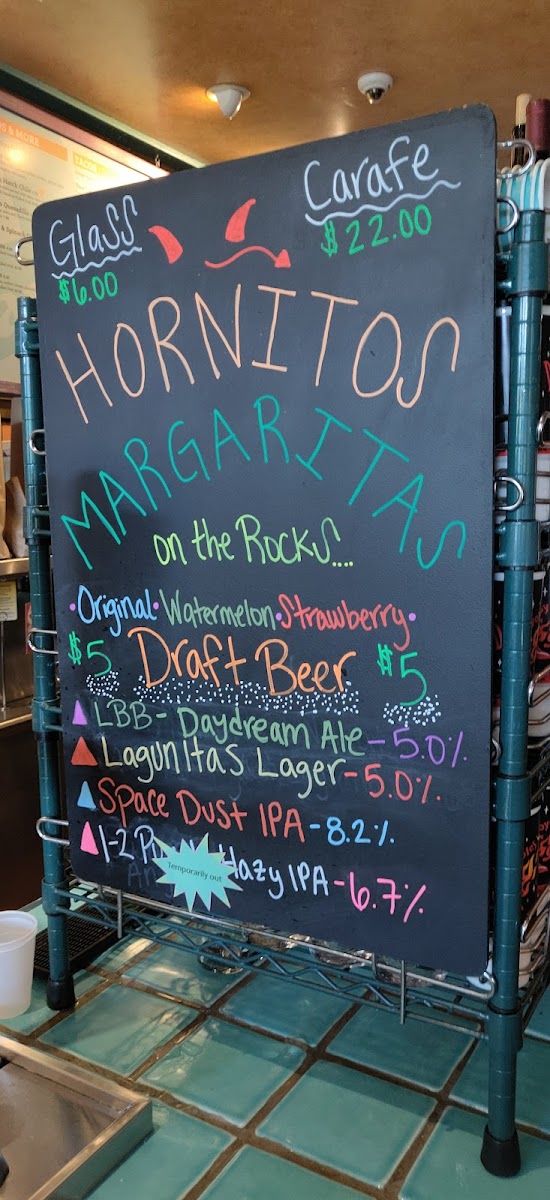 Glass
$6.00
Carafe
$22.00
HORNITOS
MARGARITAS
on the Rocks....
·Original·Watermelon·Strawberry·
$5 Draft Beer $5
LBB- Daydream Ale-5.0%
Lagunitas Lager-5.0%
Space Dust IPA-8.2%
1-2 Hazy IPA-6.7%
Temporarily out